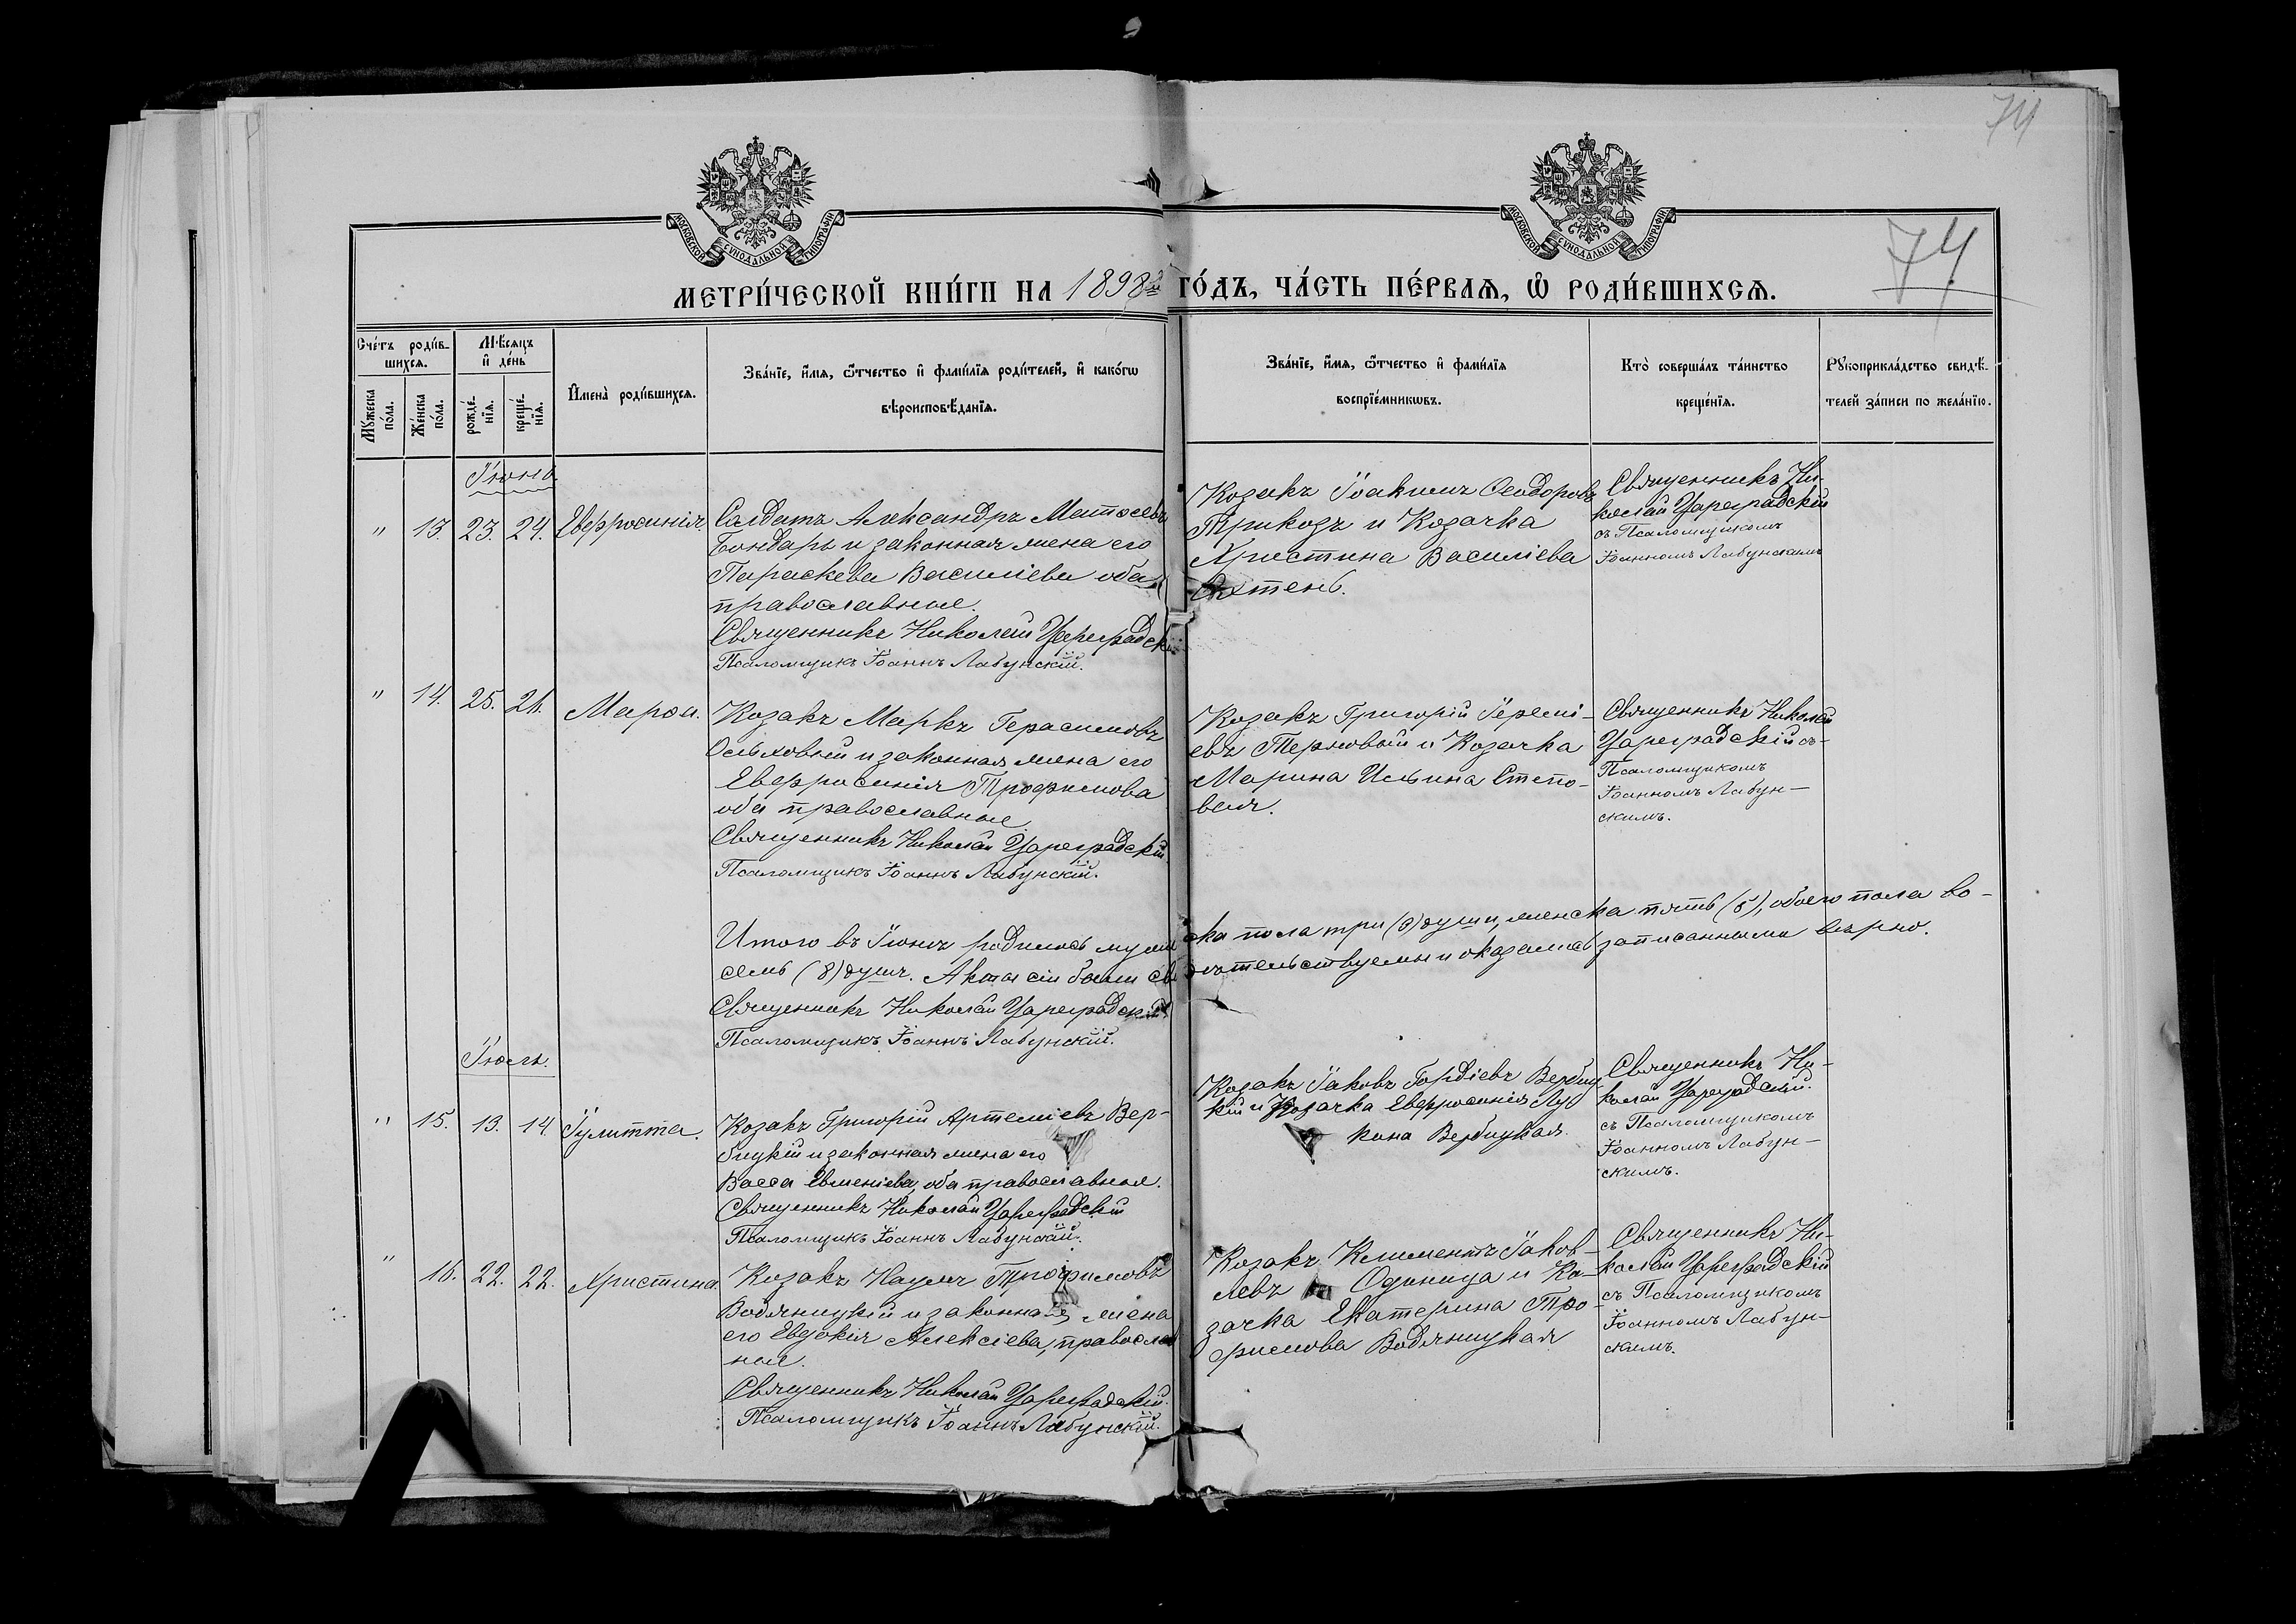 74
74
МОСКОВСКОЙ СУНОДАЛЬНОЙ ТИПОГРАФІИ
МОСКОВСКОЙ СУНОДАЛЬНОЙ ТИПОГРАФІИ
МЕТРИ́ЧЕСКОЙ КНИ́ГИ НА 1898й ГО́ДЪ, ЧА́СТЬ ПЕ́РВАѦ, Ѡ҆ РОДИ́ВШИХСѦ.
Сче́тъ роди́в-
шихся.
Мꙋ́жеска по́ла.
Же́нска по́ла.
Мѣ́сяцъ
и҆ де́нь
рожде́-
нїя.
креще́-
нїя.
И҆мена̀ роди́вшихся.
Зва́нїе, и҆́мя, ѻ҆́тчество и҆ фами́лїя роди́телей, и҆ како́гѡ
вѣроисповѣ́данїя.
Зва́нїе, и҆́мя, ѻ҆́тчество и҆ фами́лїя
воспрїе́мникѡвъ.
Кто̀ соверша́лъ та́инство
креще́нїя.
Рꙋкоприкла́дство свидѣ́-
телей за́писи по жела́нїю.
Іюнь
" 13. 23. 24. Евфросинія.
Солдатъ Александръ Матѳеевъ
Бондарь и законная жена его
Параскева Василіева оба
православные.
Священникъ Николай Цареградскій
Псаломщикъ Іоаннъ Лабунскій.
Козакъ Іоакимъ Ѳеодоровъ
Трикозъ и Козачка
Христина Василіева
Священникъ Ни-
колай Цареградскій
съ Псаломщикомъ
Іоанномъ Лабунскимъ
" 14. 25. 26. Марѳа.
Козакъ Маркъ Герасимовъ
Ольховый и законная жена его
Евфросинія Трофимова
оба православные
Священникъ Николай Цареградскій.
Псаломщикъ Іоаннъ Лабунскій.
Козакъ Григорій Іеремі-
евъ Терновый и Козачка
Марина Ильина Степо-
вая.
Священникъ Николай
Цареградскій съ
Псаломщикомъ
Іоанномъ Лабун-
скимъ.
Итого въ Іюнѣ родилось мужеска пола три (3) души, женска пять (5), обоего пола во-
семь (8) душъ. Акты сіи были свидѣтельствуемы и оказались записанными вѣрно.
Священникъ Николай Цареградскій
Псаломщикъ Іоаннъ Лабунскій.
Іюль.
" 15. 13. 14. Іулитта.
Козакъ Григорій Артеміевъ Вер-
бицкій и законная жена его
Васса Евменіева, оба православные.
Священникъ Николай Цареградскій
Псаломщикъ Іоаннъ Лабунскій.
Козакъ Іаковъ Гордіевъ Вербиц
кій и Козачка Евфросинія Лу
кина Вербицкая.
Священникъ Ни-
колай Цареградскій.
съ Псаломщикомъ
Іоанномъ Лабун-
скимъ.
" 16. 22. 22. Христина.
Козакъ Наумъ Трофимовъ
Водяницкій и законная жена
его Евдокія Алексіева, православ
ные.
Священникъ Николай Цареградскій.
Псаломщикъ Іоаннъ Лабунскій.
Козакъ Климентъ Іаков-
левъ Одиница и Ко-
зачка Екатерина Тро-
фимова Водяницкая
Священникъ Ни-
колай Цареградскій
съ Псаломщикомъ
Іоанномъ Лабун-
скимъ.